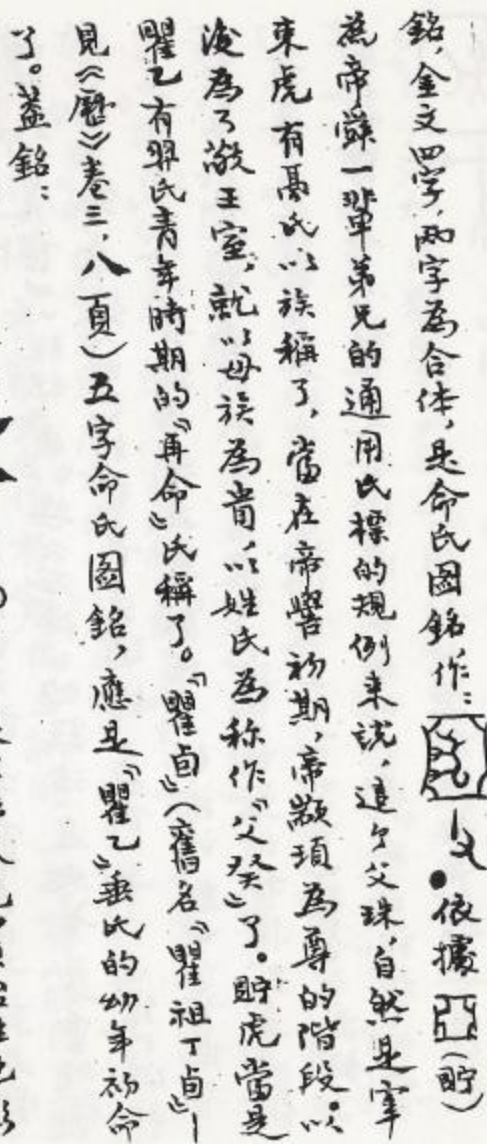 銘，金文四字，兩字為合体，是命氏圖銘作：父●依據（貯）
為帝嚳一輩弟兄的通用氏標的規例来説，這个父珠，自然是宰
來虎有鬲氏以族稱了，當在帝嚳初期，帝顓頊為尊的階段。以
後為了敬王室，就以母族為貴以姓氏為称作《父癸》了。貯虎當是
瞿乙有羿氏青年時期的《再命》氏稱了。《瞿卣》（舊名《瞿祖丁卣》—
見《歷》卷三，八頁）五字命氏圖銘，應是《瞿乙》垂氏的幼年初命
了。蓋銘：